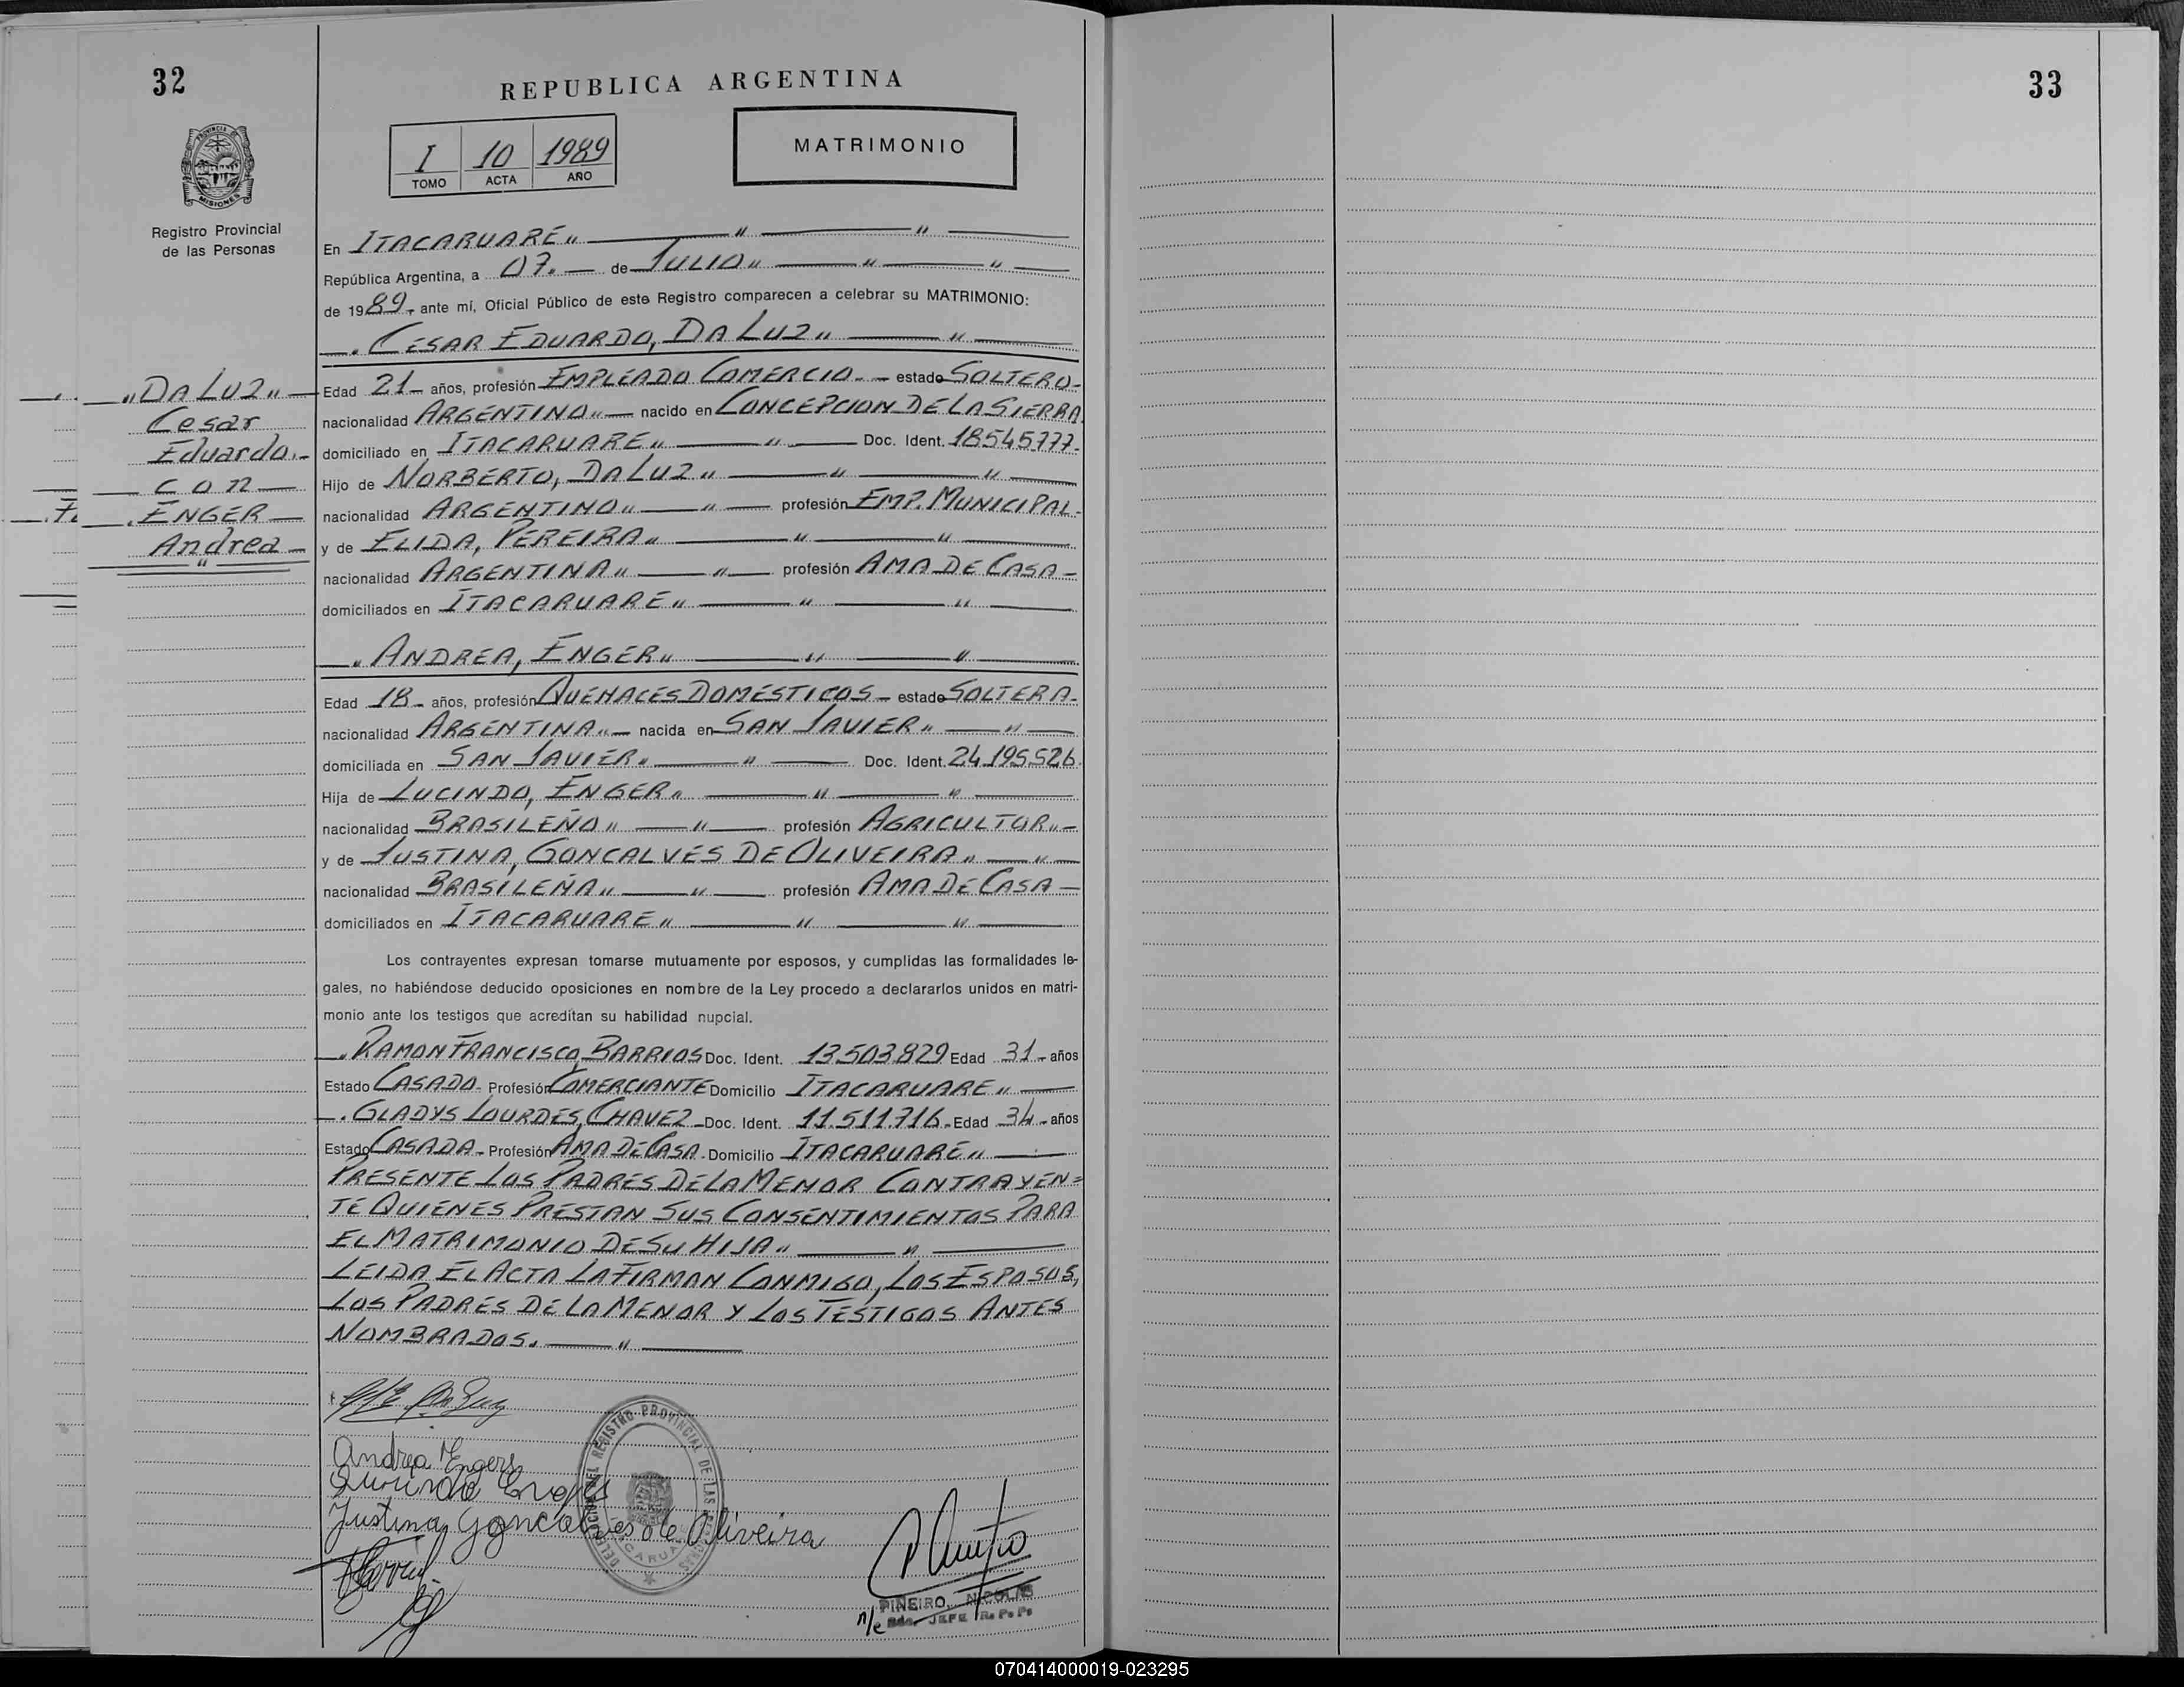 32
REPUBLICA ARGENTINA
I 10 1989
TOMO ACTA AÑO
MATRIMONIO
PROVINCIA DE MISIONES
Registro Provincial
de las Personas
En ITACARUARÉ
República Argentina, a 07.— de JULIO
de 1989, ante mí, Oficial Público de este Registro comparecen a celebrar su MATRIMONIO:
CESAR EDUARDO, DA LUZ
Edad 21 años, profesión EMPLEADO COMERCIO.- estado SOLTERO-
nacionalidad ARGENTINO nacido en CONCEPCION DE LA SIERRA
domiciliado en ITACARUARE Doc. Ident. 18545777-
Hijo de NORBERTO, DA LUZ
nacionalidad ARGENTINO profesión EMP. MUNICIPAL-
y de ELIDA, PEREIRA
nacionalidad ARGENTINA profesión AMA DE CASA-
domiciliados en ITACARUARÉ
DA LUZ
Cesar
Eduardo.-
con
ENGER
Andrea
ANDREA, ENGER
Edad 18- años, profesión QUEHACES DOMÉSTICOS- estado SOLTERA-
nacionalidad ARGENTINA nacida en SAN JAVIER
domiciliada en SAN JAVIER Doc. Ident. 24.195.526.
Hija de LUCINDO, ENGER
nacionalidad BRASILEÑO profesión AGRICULTOR
y de JUSTINA, GONCALVES DE OLIVEIRA
nacionalidad BRASILEÑA profesión AMA DE CASA
domiciliados en ITACARUARE
Los contrayentes expresan tomarse mutuamente por esposos, y cumplidas las formalidades le-
gales, no habiéndose deducido oposiciones en nombre de la Ley procedo a declararlos unidos en matri-
monio ante los testigos que acreditan su habilidad nupcial.
RAMON FRANCISCO, BARRIOS Doc. Ident. 13.503.829 Edad 31- años
Estado CASADO- Profesión COMERCIANTE Domicilio ITACARUARE
GLADYS LOURDES, CHAVEZ- Doc. Ident. 11.511.716- Edad 34- años
Estado CASADA- Profesión AMA DE CASA- Domicilio ITACARUARÉ
PRESENTE LOS PADRES DE LA MENOR CONTRAYEN=
TE QUIENES PRESTAN SUS CONSENTIMIENTOS PARA
EL MATRIMONIO DE SU HIJA
LEIDA EL ACTA LA FIRMAN CONMIGO, LOS ESPOSOS,
LOS PADRES DE LA MENOR Y LOS TESTIGOS ANTES
NOMBRADOS.
Andrea Engers
Justina Goncalves de Oliveira
REGISTRO PROVINCIAL DE LAS PERSONAS
ITACARUARE
PIÑEIRO, NICOLAS
JEFE R. P. P.
33
070414000019-023295